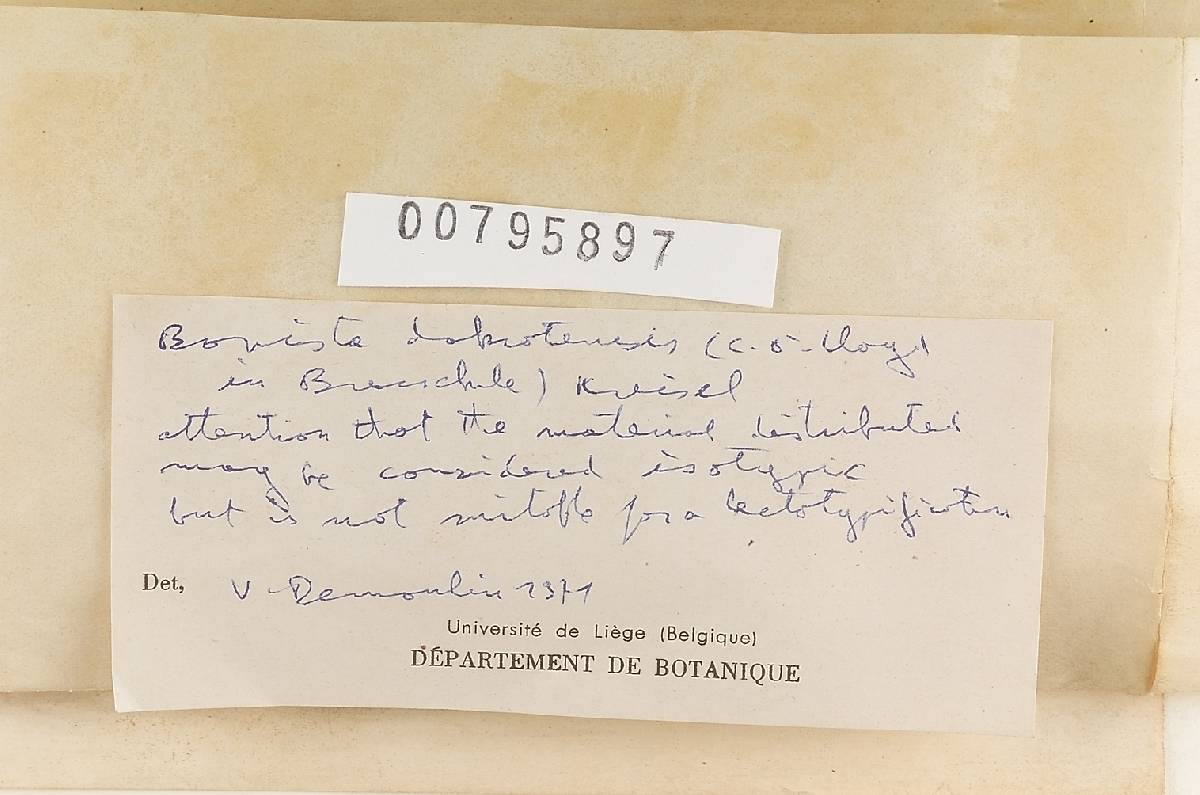 00795897
Bovista dakotensis (C.G. Lloyd
in Brenckle) Kreisel
attention that the material distributed
may be considered isotypic
but is not suitable for a lectotypification
Det, V. Demoulin 1971
Université de Liège (Belgique)
DÉPARTEMENT DE BOTANIQUE